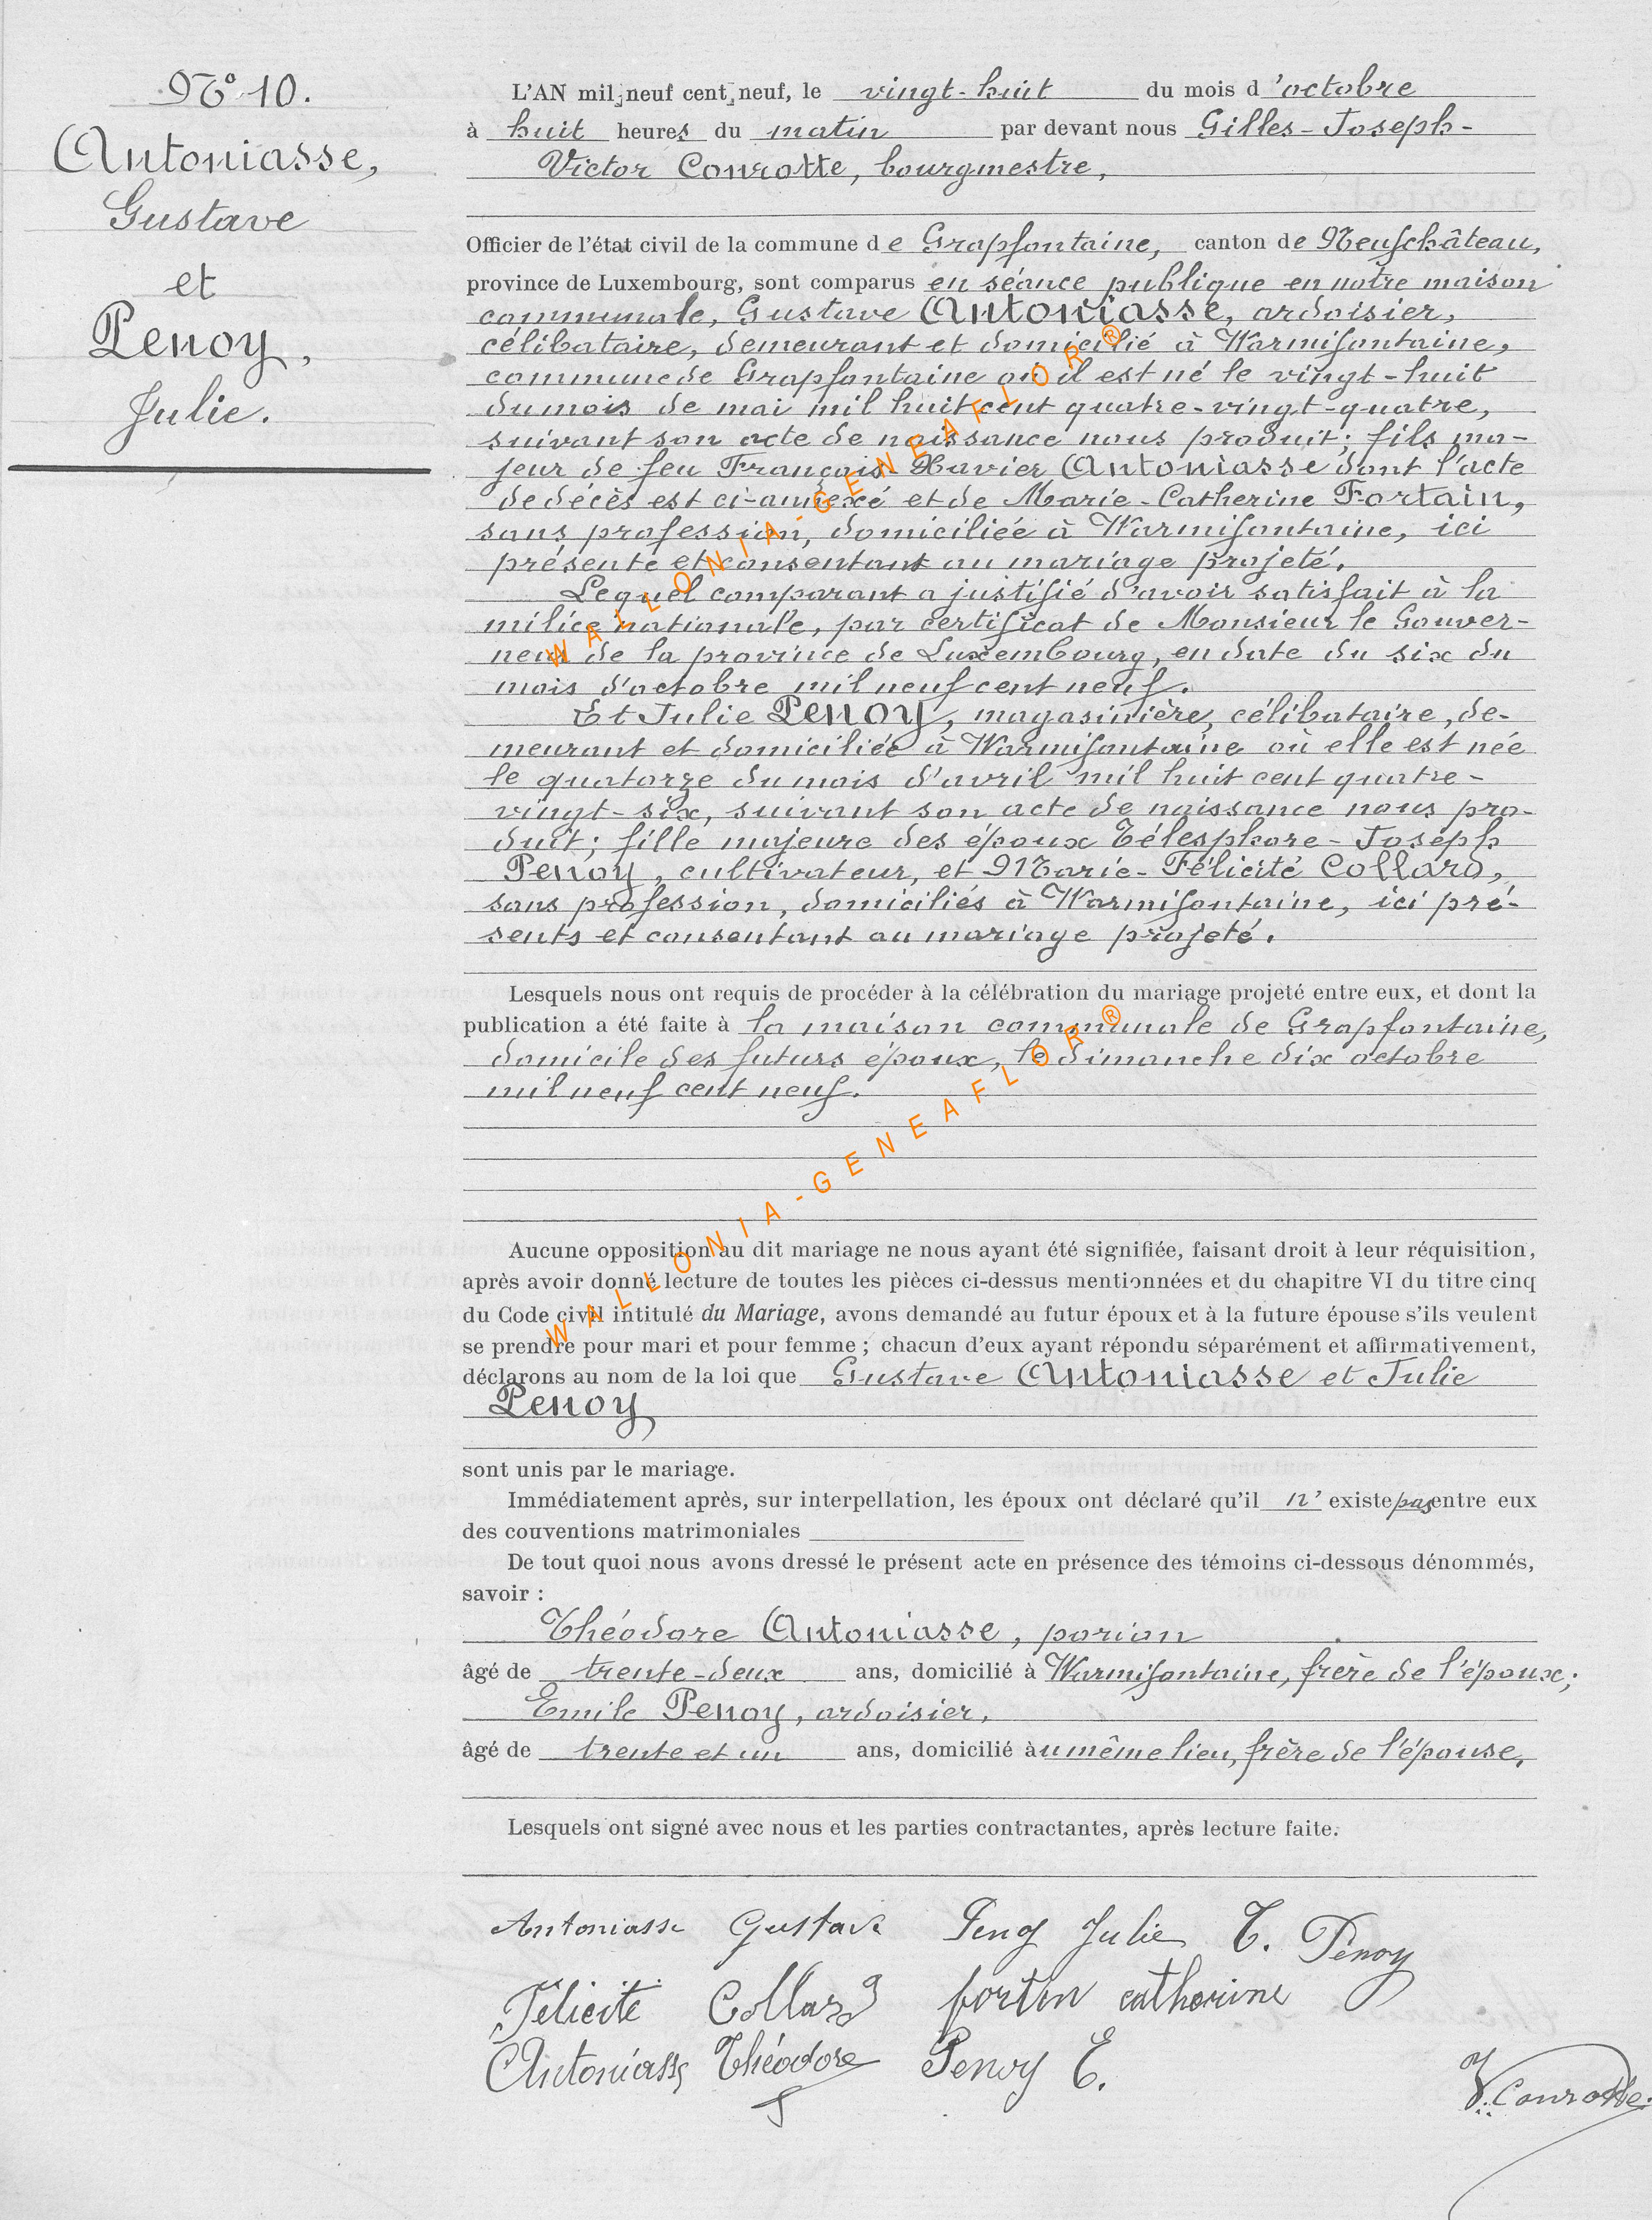 N° 10.
Antoniasse,
Gustave
et
Penoy,
Julie.
L'AN mil neuf cent neuf, le vingt-huit du mois d'octobre
à huit heures du matin par devant nous Gilles-Joseph-
Victor Conrotte, bourgmestre,
Officier de l'état civil de la commune de Grapfontaine, canton de Neufchâteau,
province de Luxembourg, sont comparus en séance publique en notre maison
communale, Gustave Antoniasse, ardoisier,
célibataire, demeurant et domicilié à Warmifontaine,
commune de Grapfontaine où il est né le vingt-huit
du mois de mai mil huit cent quatre-vingt-quatre,
suivant son acte de naissance nous produit; fils ma-
jeur de feu François-Xavier Antoniasse dont l'acte
de décès est ci-annexé et de Marie-Catherine Fortain,
sans profession, domiciliée à Warmifontaine, ici
présente et consentant au mariage projeté.
Lequel comparant a justifié d'avoir satisfait à la
milice nationale, par certificat de Monsieur le Gouver-
neur de la province de Luxembourg, en date du six du
mois d'octobre mil neuf cent neuf.
Et Julie Penoy, magasinière, célibataire, de-
meurant et domiciliée à Warmifontaine où elle est née
le quatorze du mois d'avril mil huit cent quatre-
vingt-six, suivant son acte de naissance nous pro-
duit; fille majeure des époux Télesphore-Joseph
Penoy, cultivateur, et Marie-Félicité Collard,
sans profession, domiciliés à Warmifontaine, ici pré-
sents et consentant au mariage projeté.
Lesquels nous ont requis de procéder à la célébration du mariage projeté entre eux, et dont la
publication a été faite à la maison communale de Grapfontaine,
domicile des futurs époux, le dimanche dix octobre
mil neuf cent neuf.
Aucune opposition au dit mariage ne nous ayant été signifiée, faisant droit à leur réquisition,
après avoir donné lecture de toutes les pièces ci-dessus mentionnées et du chapitre VI du titre cinq
du Code civil intitulé du Mariage, avons demandé au futur époux et à la future épouse s'ils veulent
se prendre pour mari et pour femme ; chacun d'eux ayant répondu séparément et affirmativement,
déclarons au nom de la loi que Gustave Antoniasse et Julie
Penoy
sont unis par le mariage.
Immédiatement après, sur interpellation, les époux ont déclaré qu'il n'existe pas entre eux
des conventions matrimoniales
De tout quoi nous avons dressé le présent acte en présence des témoins ci-dessous dénommés,
savoir :
Théodore Antoniasse, porion
âgé de trente-deux ans, domicilié à Warmifontaine, frère de l'époux;
Emile Penoy, ardoisier,
âgé de trente et un ans, domicilié au même lieu, frère de l'épouse.
Lesquels ont signé avec nous et les parties contractantes, après lecture faite.
Antoniasse Gustave Penoy Julie T. Penoy
Félicité Collard fortin catherine
Antoniasse Théodore Penoy E.
V. Conrotte
WALLONIA-GENEAFLOR®
WALLONIA-GENEAFLOR®